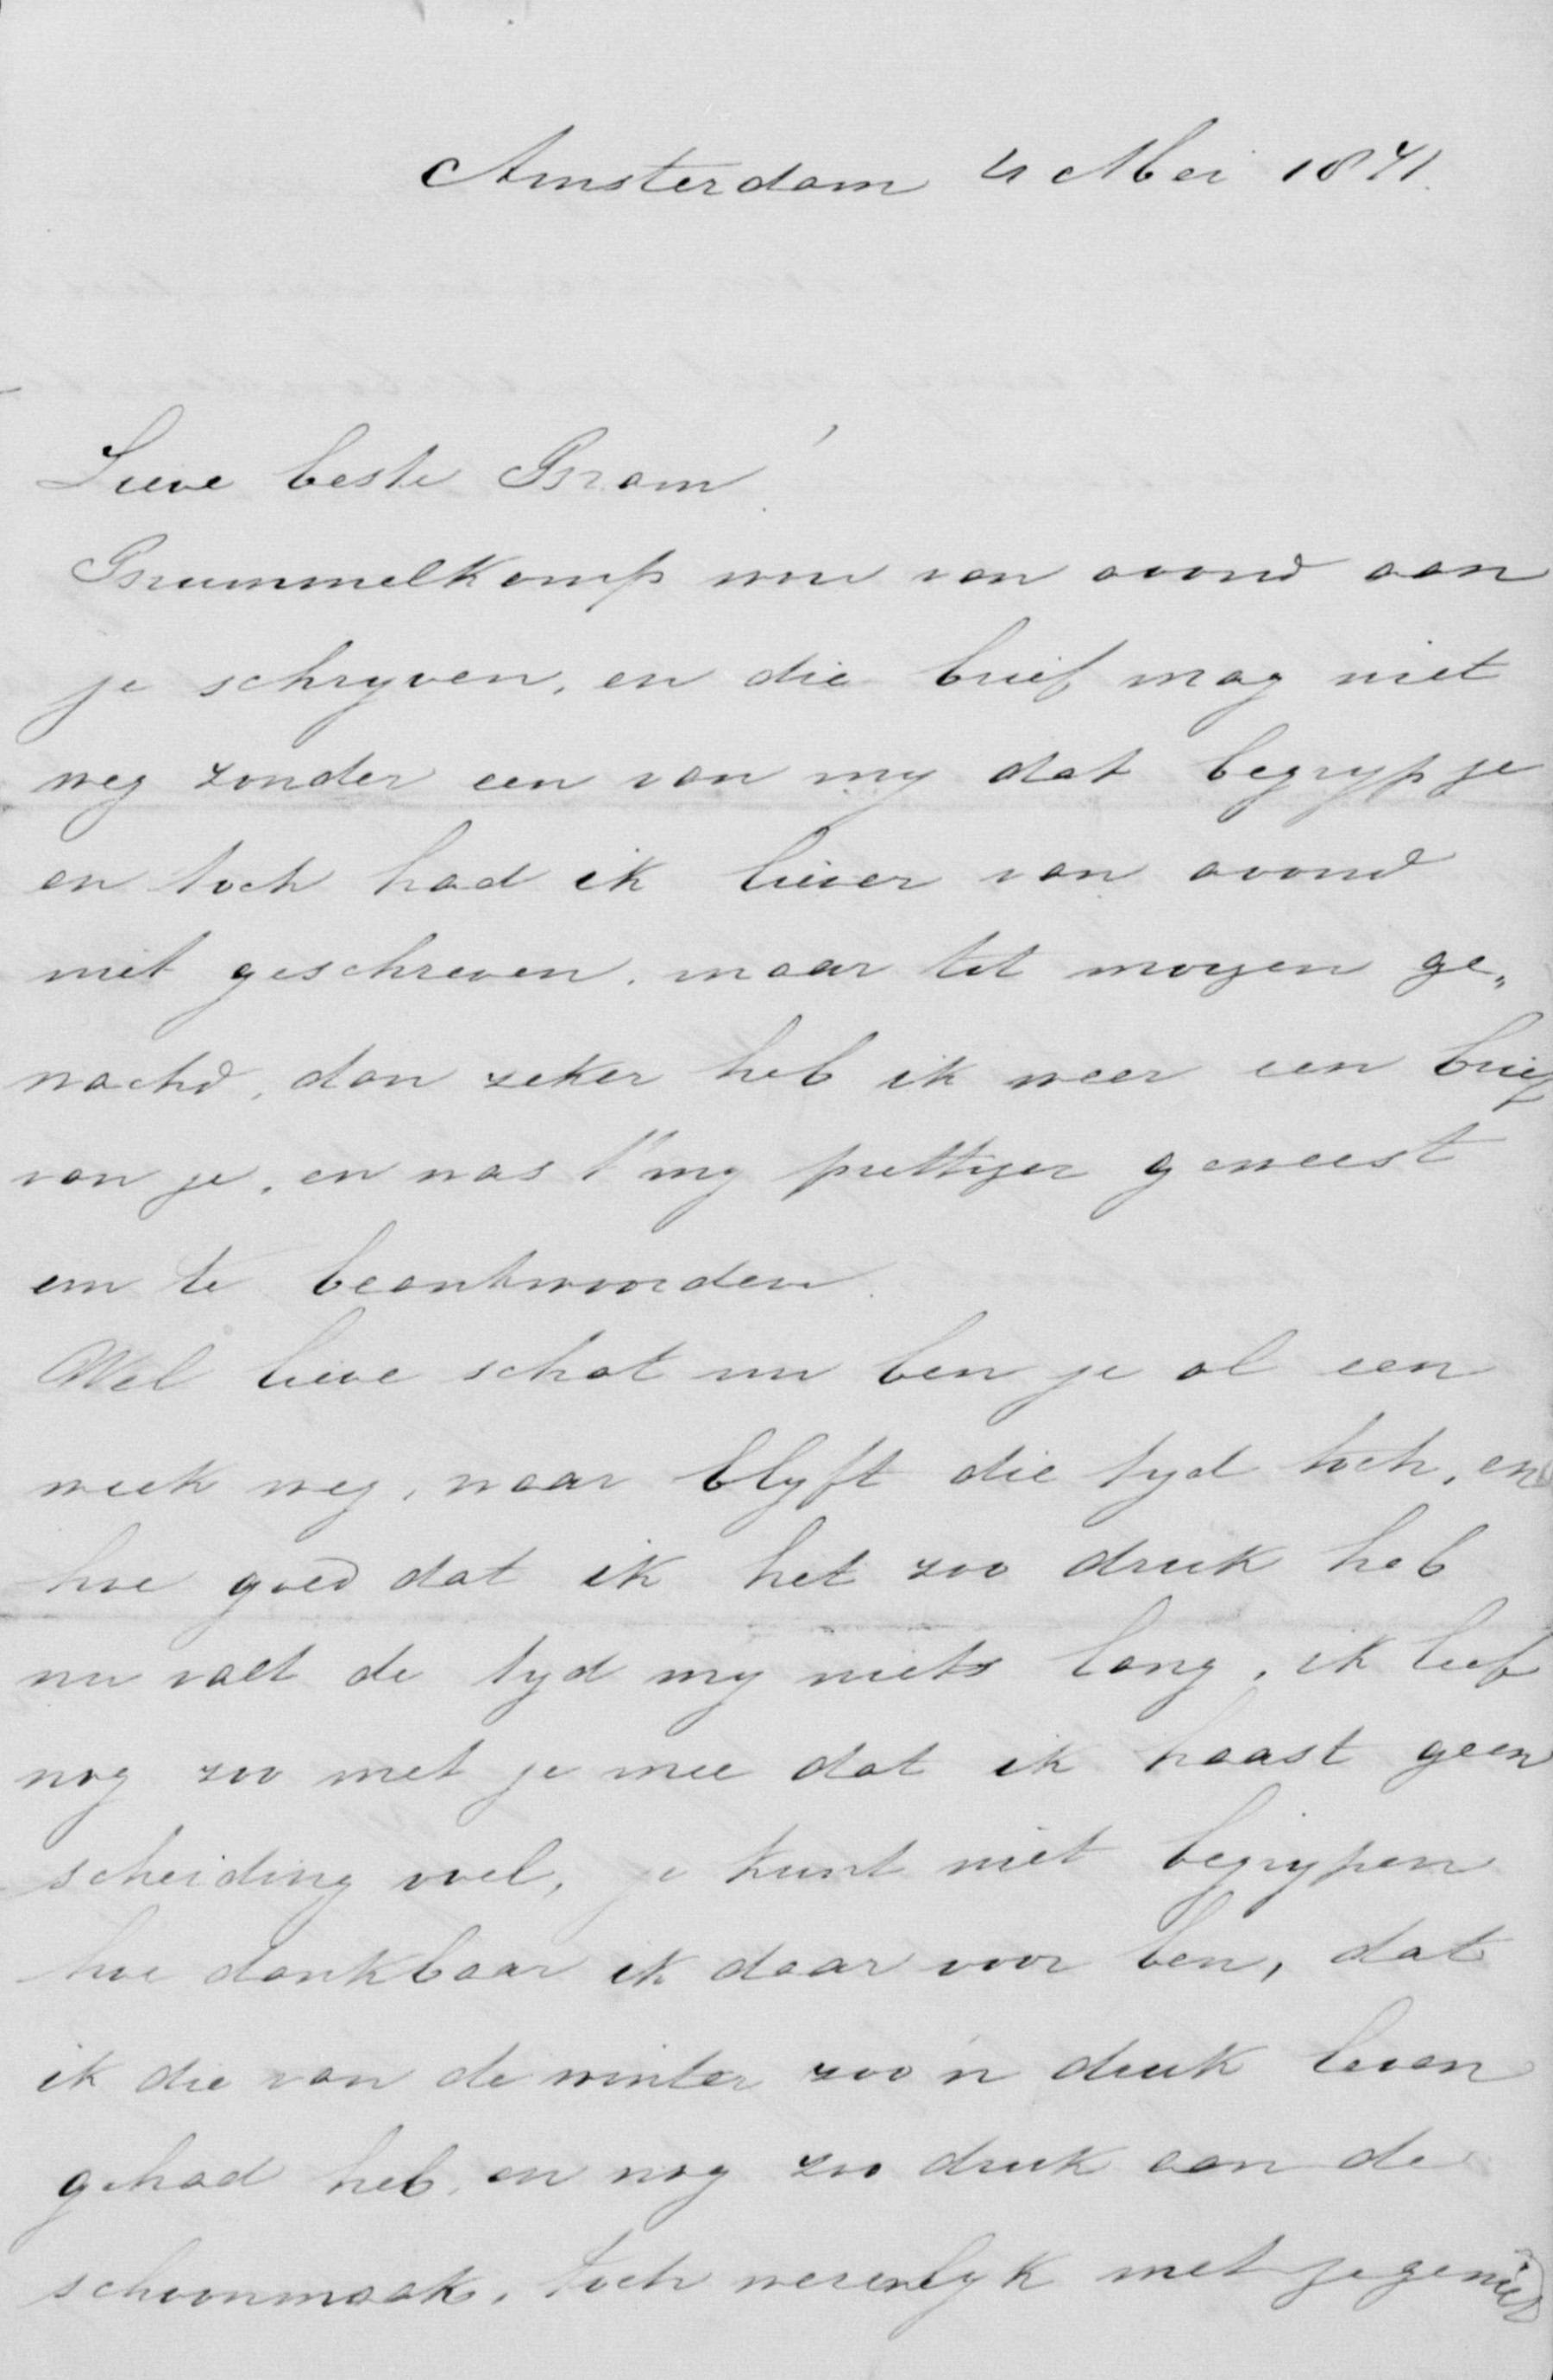 Amsterdam 4 Mei 1871.
Lieve beste Bram!
Brummelkamp wou van avond aan
je schryven, en die brief mag niet
weg zonder een van my dat begryp je
en toch had ik liever van avond
niet geschreven. maar tot morgen ge„
wacht, dan zeker heb ik weer een brief
van je, en was 't my prettiger geweest
em te beantwoorden.
Wel lieve schat nu ben je al een
week weg, waar blyft die tyd toch, en
hoe goed dat ik het zoo druk heb
nu valt de tyd my niets lang, ik leef
nog zoo met je mee dat ik haast geen
scheiding voel, je kunt niet begrypen
hoe dankbaar ik daar voor ben, dat
ik die van de winter zoo'n druk leven
gehad heb, en nog zoo druk aan de
schoonmaak, toch wezenlyk met je geniet